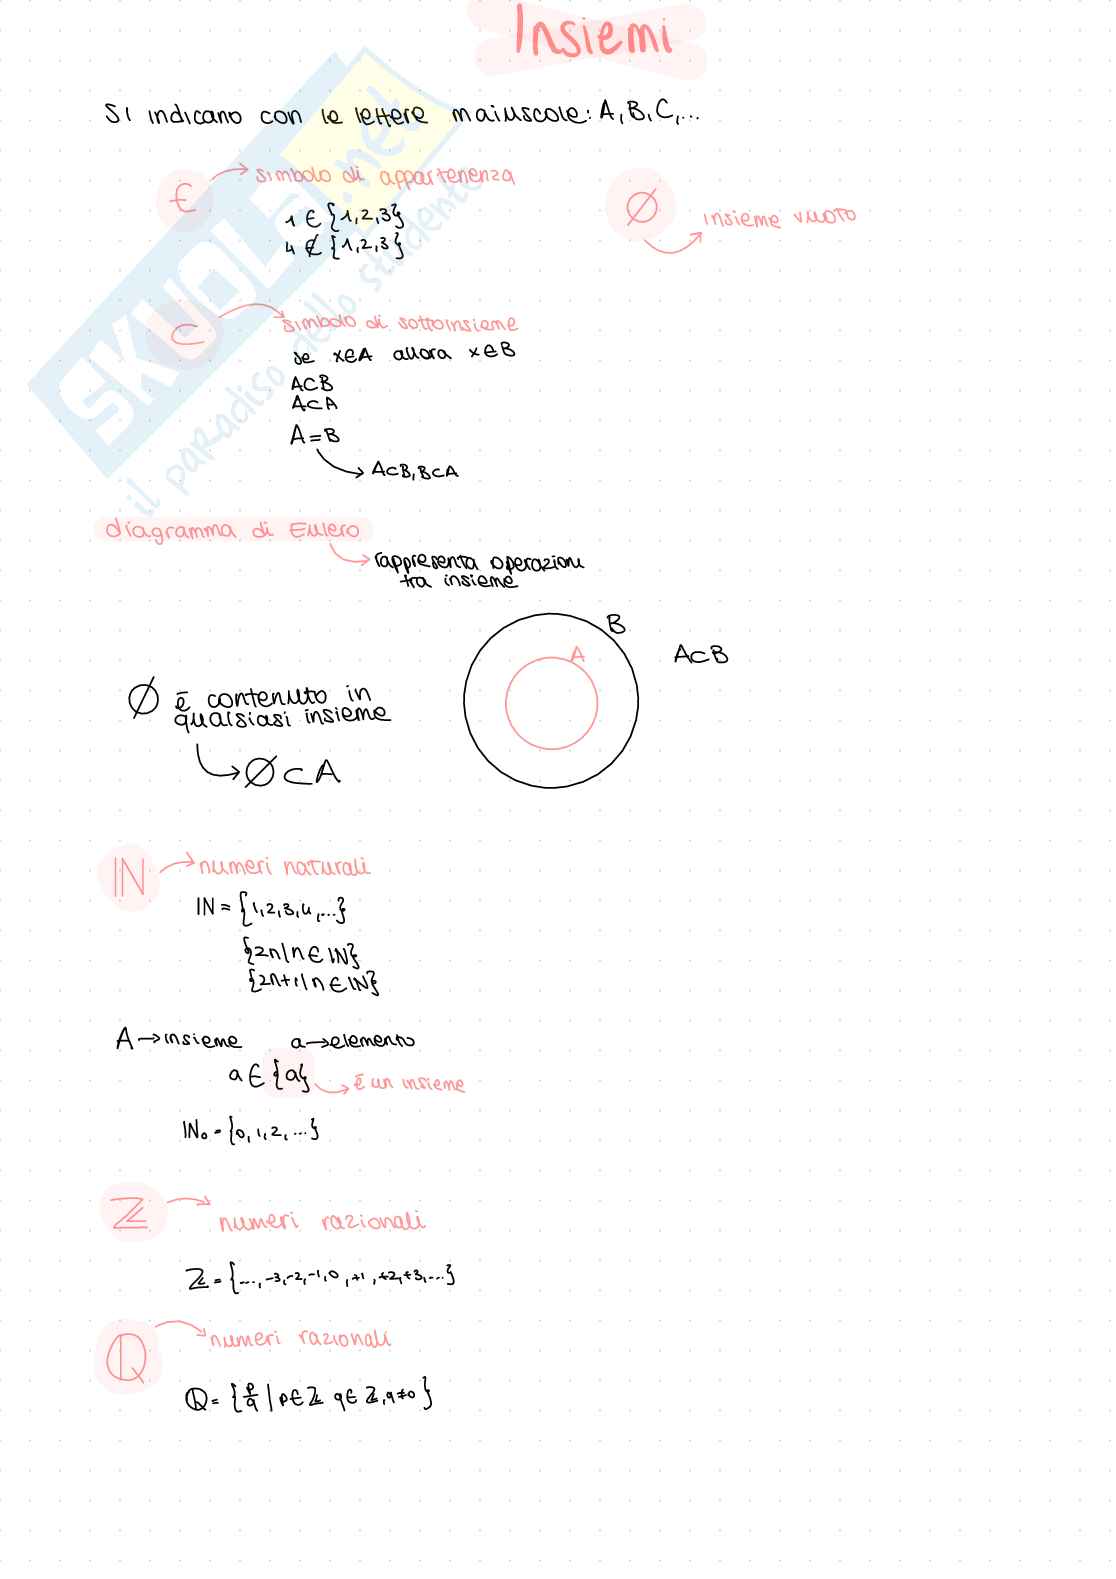 Insiemi
Si indicano con le lettere maiuscole: A, B, C, ...
∈ simbolo di appartenenza
1 ∈ {1,2,3}
4 ∉ {1,2,3}
∅ insieme vuoto
⊂ simbolo di sottoinsieme
se x∈A allora x∈B
A⊂B
A⊂A
A=B
A⊂B, B⊂A
diagramma di Eulero
rappresenta operazioni
tra insieme
B
A
A⊂B
∅ è contenuto in
qualsiasi insieme
∅⊂A
ℕ numeri naturali
ℕ = {1,2,3,4,...}
{2n|n∈ℕ}
{2n+1|n∈ℕ}
A→insieme a→elemento
a∈{a} è un insieme
ℕ₀ = {0,1,2,...}
ℤ numeri razionali
ℤ = {...,-3,-2,-1,0,+1,+2,+3,...}
ℚ numeri razionali
ℚ = {p/q | p∈ℤ q∈ℤ, q≠0}
SKUOLA.net
il paradiso dello studente